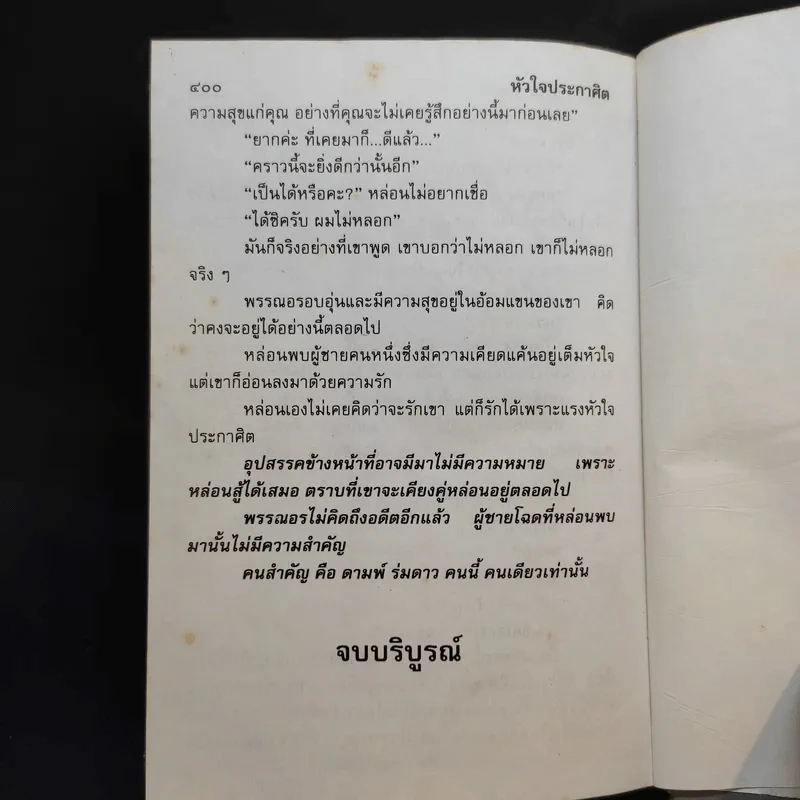 ๔๐๐
หัวใจประกาศิต
ความสุขแก่คุณ อย่างที่คุณจะไม่เคยรู้สึกอย่างนี้มาก่อนเลย”
“ยากค่ะ ที่เคยมาก็...ดีแล้ว...”
“คราวนี้จะยิ่งดีกว่านั้นอีก”
“เป็นได้หรือคะ?” หล่อนไม่อยากเชื่อ
“ได้ซิครับ ผมไม่หลอก”
มันก็จริงอย่างที่เขาพูด เขาบอกว่าไม่หลอก เขาก็ไม่หลอก
จริง ๆ
พรรณอรอบอุ่นและมีความสุขอยู่ในอ้อมแขนของเขา คิด
ว่าคงจะอยู่ได้อย่างนี้ตลอดไป
หล่อนพบผู้ชายคนหนึ่งซึ่งมีความเคียดแค้นอยู่เต็มหัวใจ
แต่เขาก็อ่อนลงมาด้วยความรัก
หล่อนเองไม่เคยคิดว่าจะรักเขา แต่ก็รักได้เพราะแรงหัวใจ
ประกาศิต
อุปสรรคข้างหน้าที่อาจมีมาไม่มีความหมาย เพราะ
หล่อนสู้ได้เสมอ ตราบที่เขาจะเคียงคู่หล่อนอยู่ตลอดไป
พรรณอรไม่คิดถึงอดีตอีกแล้ว ผู้ชายโฉดที่หล่อนพบ
มานั้นไม่มีความสำคัญ
คนสำคัญ คือ ดามพ์ ร่มดาว คนนี้ คนเดียวเท่านั้น
จบบริบูรณ์